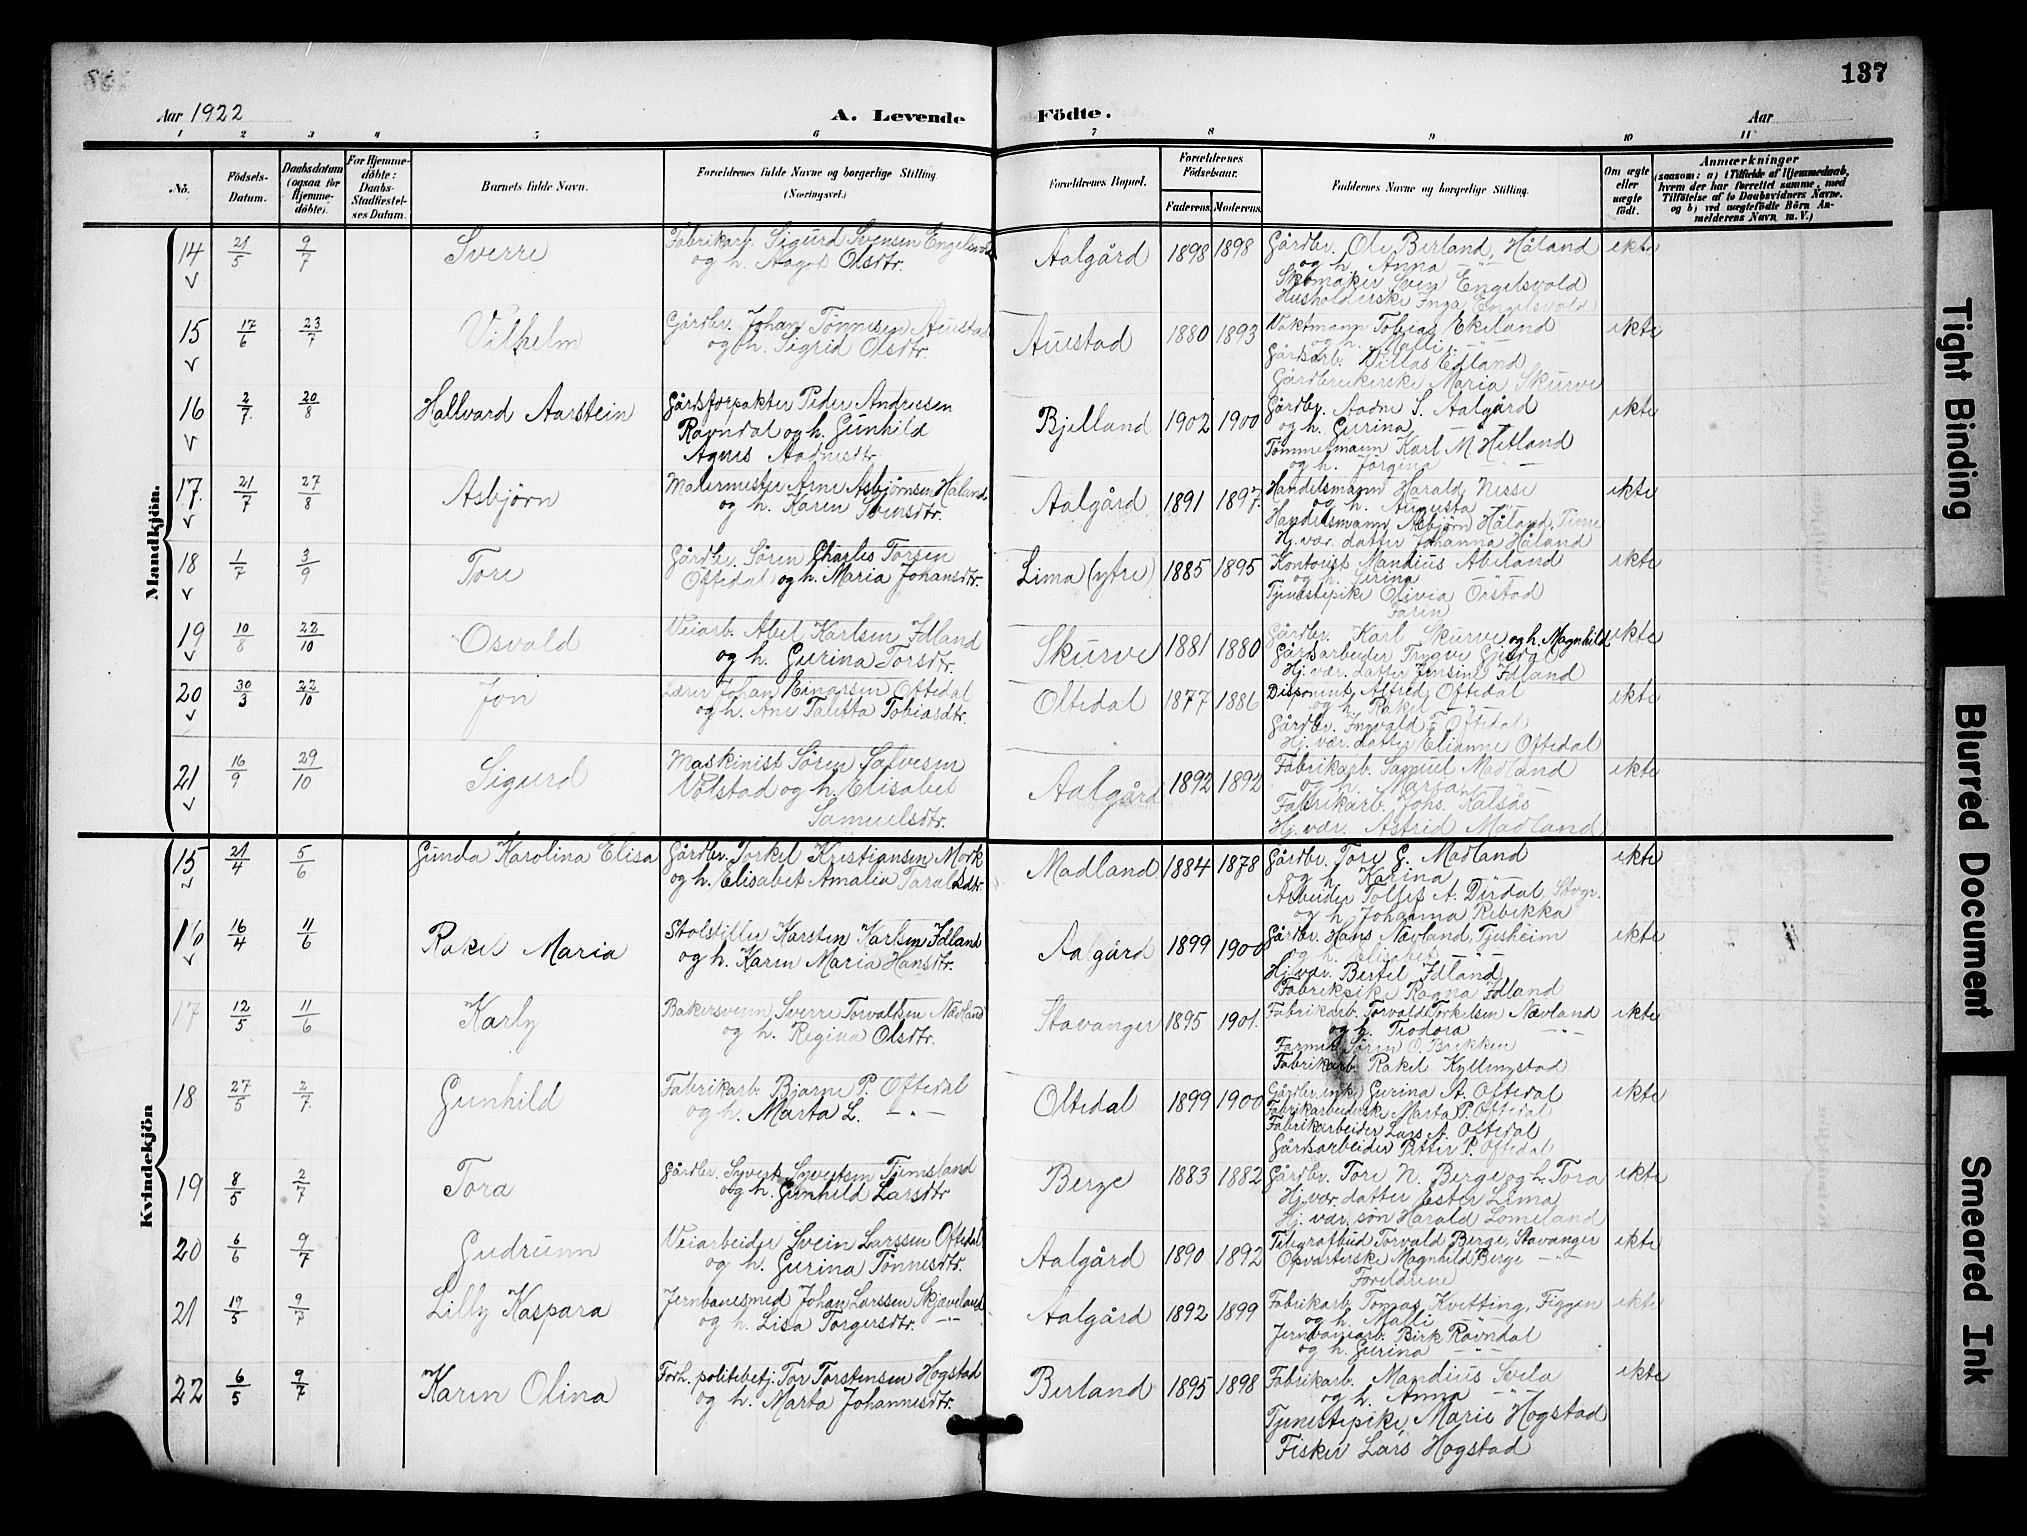 137
Aar 1922
A. Levende
Födte.
Aar
1 2 3 4 5 6 7 8 9 10 11
No.
Födsels-Datum.
Daabsdatum (ogsaa for Hjemme-döbte).
For Hjemme-döbte: Daabs-Stadfæstel-ses Datum.
Barnets fulde Navn.
Forældrenes fulde Navne og borgerlige Stilling. (Næringsvei.)
Forældrenes Bopæl.
Forældrenes Födselsaar.
Faderens. Moderens.
Faddernes Navne og borgerlige Stilling.
Om ægte eller uægte födt.
Anmærkninger
(saasom: a) i Tilfælde af Hjemmedaab, hvem der har forrettet samme, med Tilföielse af to Daabsvidners Navne. og b) ved uægtefödte Börn Anmelderens Navn m. V.)
Mandkjön.
14 21/5 9/7 Sverre
Fabrikarb. Sigurd Svensen Engelsvold
og h. Aagot Olsdtr.
Aalgård 1898 1898
Gårdbr. Ole Berland, Håland
og h. Anna —"—
Skomaker Sven Engelsvold
Husholderske Inga Engelsvold
ekte
15 17/6 23/7 Vilhelm
Gårdbr. Johan Tönnesen Auestad
og h. Sigrid Olsdtr.
Auestad 1880 1893
Vaktmann Tobias Ekeland
og h. Malli —"—
Gårdsarb. Villas Edland
Gårdbrukerske Maria Skurve
ekte
16 2/7 20/8 Hallvard Aarstein
Gårdsforpakter Peder Andresen
Ravndal og h. Gunhild
Agnes Aadnesdtr.
Bjelland 1902 1900
Gårdbr. Aadne S. Aalgård
og h. Gurina —
Tömmermann Karl M. Hetland
og h. Jörgina
ekte
17. 21/7 27/8 Asbjörn
Malermester Arne Asbjörnsen Håland
og h. Karen Svensdtr.
Aalgård 1891 1897.
Handelsmann Harald Nesse
og h. Augusta —"—
Handelsmann Asbjörn Håland, Time
Hj. vær. datter Johanna Håland
ekte
18 1/7 3/9 Tore
Gårdbr. Sören Charles Torsen
Oftedal og h. Maria Johansdtr.
Lima (ytre) 1885 1895
Kontorist Mandius Abeland
og h. Gurina —"—
Tjenestepike Olivia Orstad
Faren
ekte
19 10/8 22/10 Osvald
Veiarb. Abel Karlsen Idland
og h. Gurina Torsdtr.
Skurve 1881 1880
Gårdbr. Karl Skurve og h. Magnhild
Gårdsarbeider Trygve Gjesdal
Hj. vær. datter Jensine Idland
ekte
20 30/3 22/10 Jon
Lærer Johan Einarsen Oftedal
og h. Ane Taletta Tobiasdtr.
Oltedal 1877 1886
Disponent Alfred Oftedal
og h. Rakel —"—
Gårdbr. Ingvald T. Oftedal
Hj. vær. datter Elianne Oftedal
ekte
21 16/9 29/10 Sigurd
Maskinist Sören Salvesen
Volstad og h. Elisabet
Samuelsdtr.
Aalgård 1892 1892
Fabrikarb. Samuel Madland
og h. Marta —"—
Fabrikarb. Johs. Kalsås
Hj. vær. Astrid Madland
ekte
Kvindekjön
15 21/4 5/6 Gunda Karolina Elisa
Gårdbr. Torkel Kristiansen Mork
og h. Elisabet Amalia Taraldsdtr.
Madland 1884 1878
Gårdbr. Tore G. Madland
og h. Karina —
Arbeider Tollef A. Dirdal Stvgr.
og h. Johanna Rebekka
ekte
16 16/4 11/6 Rakel Maria
Stolstiller Karsten Karlsen Idland
og h. Karen Maria Hansdtr.
Aalgård 1899 1900
Gårdbr. Hans Nævland, Tjesheim
og h. Elisabet —"—
Hj. vær. Bertel Idland
Fabrikpike Ragna Idland
ekte
17 12/5 11/6 Karly
Bakersvenn Sverre Torvaldsen Nævland
og h. Regina Olsdtr.
Stavanger 1895 1901.
Fabrikarb. Torvald Torkelsen Nævland
og h. Teodora —"—
Farmer Sören O. Brekken
Fabrikarb. Rakel Kyllingstad
ekte
18 27/5 2/7 Gunhild
Fabrikarb. Bjarne P. Oftedal
og h. Marta L. —"—
Oltedal 1899 1900
Gårdbr. enke Gurina A. Oftedal
Fabrikarbeiderske Marta P. Oftedal
Fabrikarbeider Lars A. Oftedal
Gårdsarbeider Petter P. Oftedal
ekte
19 8/5 2/7 Tora
Gårdbr. Syvert Syvertsen Tjemsland
og h. Gunhild Larsdtr
Berge 1883 1882
Gårdbr. Tore N. Berge og h. Tora
Hj. vær. datter Ester Lima
Hj. vær. sön Harald Lomeland
ekte
20 6/6 9/7 Gudrunn
Veiarbeider Svein Larssen Oftedal
og h. Gurina Tönnesdtr.
Aalgård 1890 1892
Telegrafbud Torvald Berge, Stavanger
Opvarterske Magnhild Berge —"—
Foreldrene
ekte
21 19/5 9/7 Lilly Kaspara
Jernbanesmed Johan Larssen Skjæveland
og h. Lisa Torgersdtr. —"—
Aalgård 1892 1899
Fabrikarb. Tomas Kvitting, Figgen
og h. Malli —"—
Jernbanearb. Birk Ravndal
og h. Gurina —"—
ekte
22 6/5 9/7 Karen Olina
Forh. politibetj. Tor Torstensen Hogstad
og h. Marta Johannesdtr.
Berland 1895 1898
Fabrikarb. Mandius Svela
og h. Anna —"—
Tjenestepike Marie Hogstad
Fisker Lars Hogstad
ekte
Tight Binding
Blurred Document
Smeared Ink